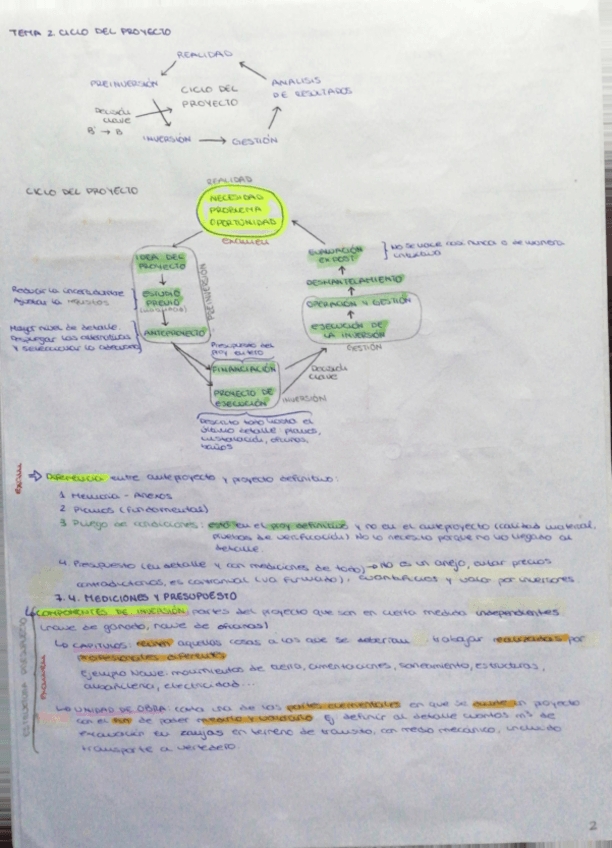 TEMA 2. CICLO DEL PROYECTO
REALIDAD
PREINVERSIÓN
CICLO DEL
PROYECTO
ANALISIS
DE RESULTADOS
DECISIÓN
CLAVE
B' → B
INVERSIÓN → GESTIÓN
CICLO DEL PROYECTO
REALIDAD
NECESIDAD
PROBLEMA
OPORTUNIDAD
EXAMEN
IDEA DEL
PROYECTO
ESTUDIO
PREVIO
ANTEPROYECTO
PREINVERSIÓN
Reducir la incertidumbre
Ajustar la
Mayor nivel de detalle.
las alternativas
y seleccionar la adecuada
Presupuesto del
proy entero
FINANCIACIÓN
PROYECTO DE
EJECUCIÓN
INVERSIÓN
Decisión
clave
Descrito todo hasta el
último detalle: planos,
instalación,
EVALUACIÓN
EXPOST
No se hace casi nunca o de manera
intuitiva
DESMANTELAMIENTO
OPERACIÓN Y GESTIÓN
EJECUCIÓN DE
LA INVERSIÓN
GESTIÓN
examen
⇒ DIFERENCIA entre anteproyecto y proyecto definitivo:
1 Memoria - Anexos
2 Planos (fundamental)
3 Pliego de condiciones: está en el proy definitivo y no en el anteproyecto (calidad material,
pruebas de verificación) No lo necesito porque no ha llegado al
detalle.
4. Presupuesto (en detalle y con mediciones de todo) → No es un anejo, evitar precios
contradictorios, es contractual (va firmado), y valor por inversores.
7.4. MEDICIONES Y PRESUPUESTO
ESTRUCTURA PRESUPUESTO
Examen
COMPONENTES DE INVERSIÓN: partes del proyecto que son en cierta medida independientes
(nave de ganado, nave de oficinas)
CAPITULOS: reúnen aquellas cosas a las que se deberían trabajar realizadas por
profesionales diferentes
Ejemplo nave: movimientos de tierra, cimentaciones, saneamiento, estructuras,
albañilería, electricidad...
UNIDAD DE OBRA: cada una de las partes elementales en que se divide un proyecto
con el fin de poder medirlo y valorarlo Ej definir al detalle cuantos m³ de
excavación en zanjas en terreno de transito, con medio mecánico, incluido
transporte a vertedero
2